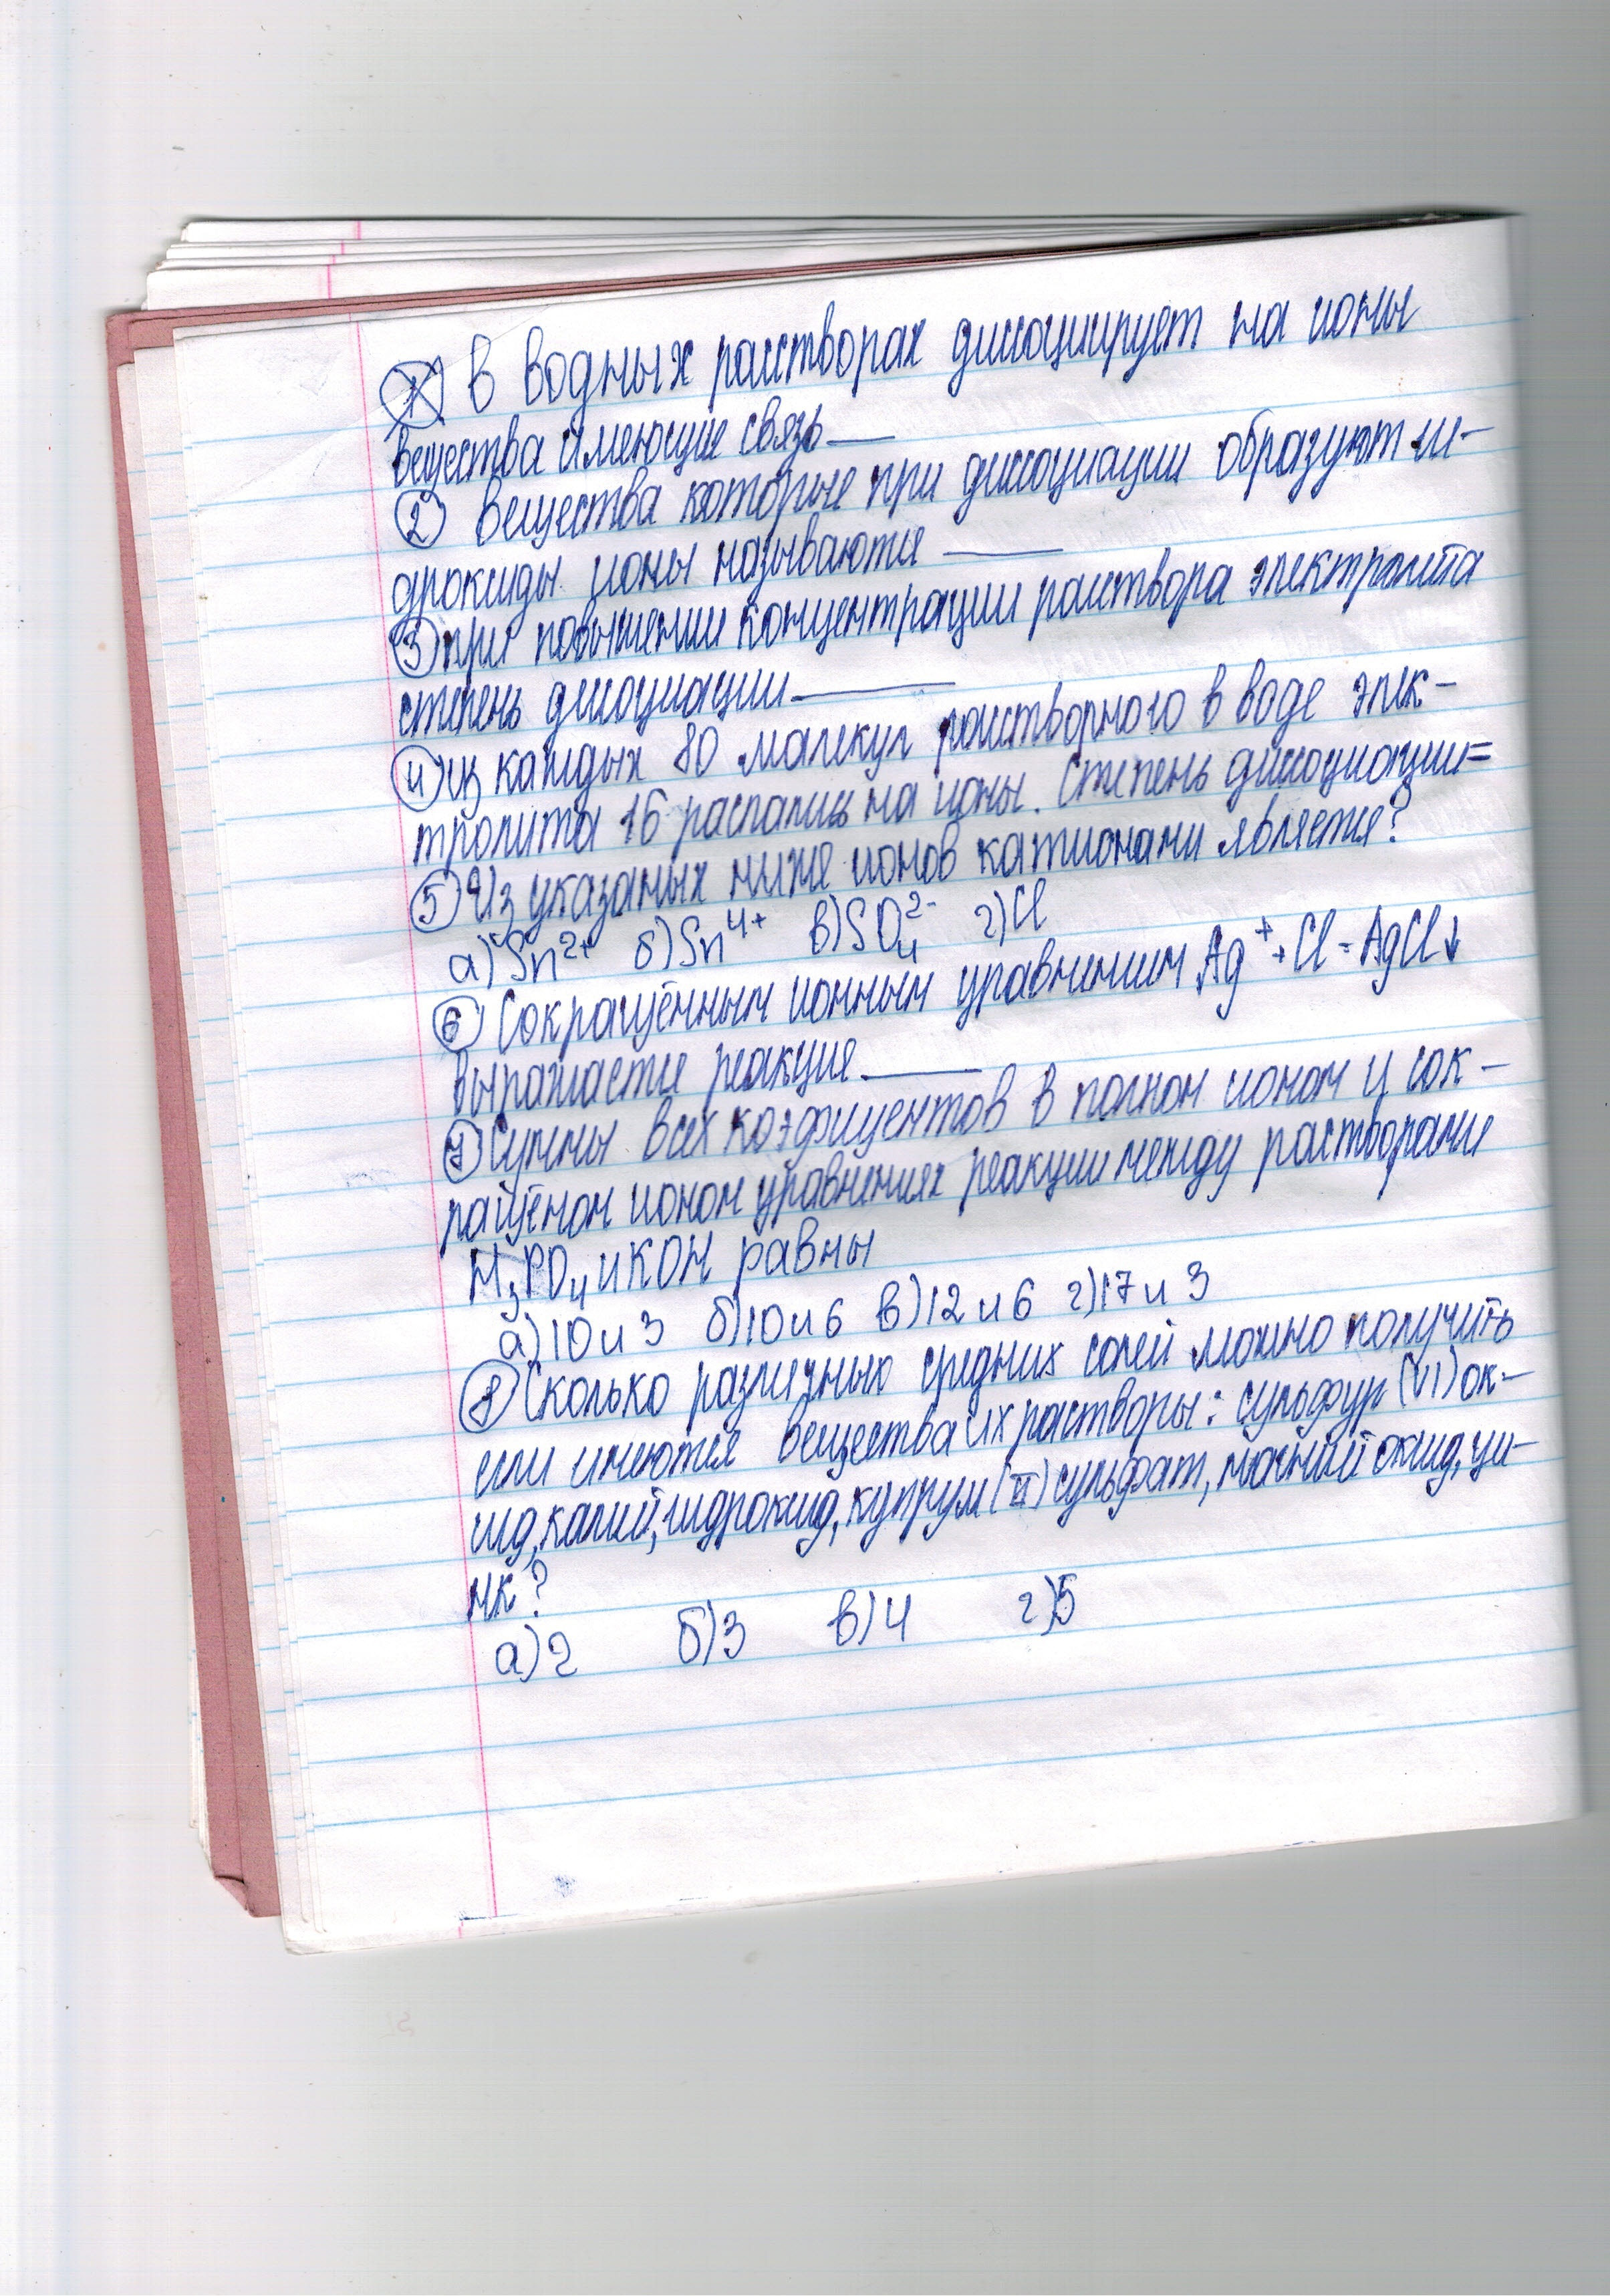 ① В водных растворах диссоциирует на ионы
вещества имеющие связь —
② Вещества которые при диссоциации образуют ги-
дроксиды ионы называются —
③ при повышении концентрации раствора электролита
степень диссоциации —
④ из каждых 80 малекул растворного в воде элек-
тролита 16 распались на ионы. Степень диссоциации=
⑤ Из указаных ниже ионов катионами является?
а) Sn²⁺ б) Sn⁴⁺ в) SO₄²⁻ г) Cl
⑥ Сокращённым ионным уравнением Ag⁺ + Cl = AgCl↓
выражается реакция —
⑦ Суммы всех коэфициентов в полном ионом и сок-
ращёном ионом уравнениях реакции между растворами
H₃PO₄ и KOH равны
а) 10 и 3 б) 10 и 6 в) 12 и 6 г) 17 и 3
⑧ Сколько различных средних солей можно получить
если имеются вещества их растворы: сульфур (VI) ок-
сид, калий, гидроксид, купрум (II) сульфат, магний оксид, ци-
нк?
а) 2 б) 3 в) 4 г) 5